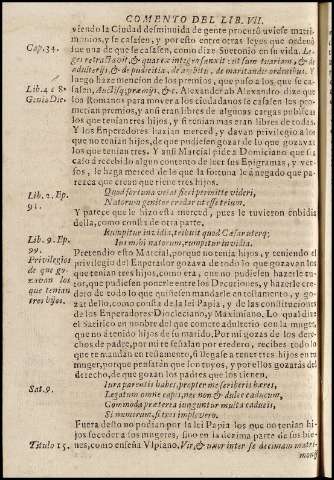 COMENTO DEL LIB. VII.
viendo la Ciudad desminuida de gente procuró uviese matri-
monios, y se casasen, y por esto entre otras leyes que ordenó
Cap. 34.
fue una de que se casasen, como dize Suetonio en su vida. Le-
ges retractavit, & quasdam ex integro sanxit ut sumtuariam, & de
adulterijs, & de pudicitia, de ambitu, de maritandis ordinibus. Y
luego haze mencion de los premios, que puso a los, que se ca-
Lib. 4. c 8.
sasen. Auctisq; præmijs, &c. Alexander ab Alexandro dize que
Genia Die.
los Romanos para mover a los ciudadanos le casasen les pro-
metian premios, y asi eran libres de algunas cargas publicas
los que tenian tres hijos, y si tenian mas eran libres de todas.
Y los Enperadores hazian merced, y davan privilegio a los
que no tenian hijos, de que pudiesen gozar de lo que gozavan
los que tenian tres. Y ansi Marcial pide a Domiciano que si a
caso à recebido algun contento de leer sus Epigramas, y ver-
sos, le haga merced de lo que la fortune le a negado que pa-
rezca que crean que tiene tres hijos.
Lib. 2. Ep.
91.
Quod fortuna vetat fieri permitte videri,
Natorum genitor credar ut esse trium.
Y parece que le hizo esta merced, pues le tuvieron enbidia
della, como consta de otra parte.
Lib. 9. Ep.
99.
Rumpitur invidia, tribuit quod Cæsar uterq;
Ius mihi natorum, rumpitur invidia.
Privilegios
de que go-
zavan los
que tenian
tres hijos.
Pretendio esto Marcial, porque no tenia hijos, y teniendo el
privilegio del Enperador gozava de todo lo que gozavan los
que tenian tres hijos, como era, que no pudiesen hazerle tu-
tor, que pudiesen ponerle entre los Decuriones, y hazerle ere-
dero de todo lo que quisiesen mandarle en testamento, y go-
zar dello, como consta de la lei Papia, y de las constituciones
de los Enperadores Diocleciano, y Maximiano. Lo qual dize
el Satirico en nonbre del que comete adulterio con la muger
que no á tenido hijos de su marido. Por mi gozas de los dere-
chos de padre, por mi te señalan por eredero, recibes todo lo
que te mandan en testamento, si llegase a tener tres hijos en tu
muger, porque penfaràn que son tuyos, y por ellos gozaràs del
derecho, de que gozan los padres que los tienen.
Sat. 9.
Iura parentis habes, propter me scriberis hæres,
Legatum omne capis, nec non & dulce caducum,
Commoda præterea iunguntur multa caducis,
Si numerum, si tres implevero.
Fuera desto no podian por la lei Papia los que no tenian hi-
jos suceder a los mugeres, sino en la dezima parte de sus bie-
Titulo 15.
nes, como enseña Vlpiano, Vir, & uxor inter se decimam matri-
monij